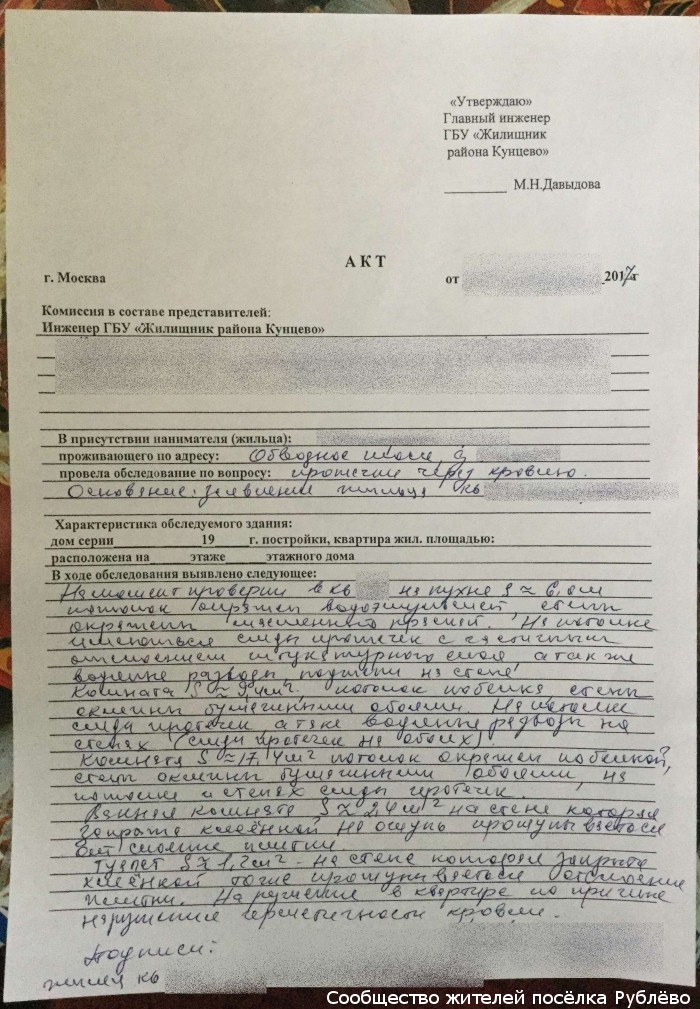 «Утверждаю»
Главный инженер
ГБУ «Жилищник
района Кунцево»
М.Н.Давыдова
АКТ
г. Москва
от 2017г
Комиссия в составе представителей:
Инженер ГБУ «Жилищник района Кунцево»
В присутствии нанимателя (жильца):
проживающего по адресу: Обводное шоссе, д
провела обследование по вопросу: протечки через кровлю.
Основание: заявление жильца кв
Характеристика обследуемого здания:
дом серии 19 г. постройки, квартира жил. площадью:
расположена на этаже этажного дома
В ходе обследования выявлено следующее:
На момент проверки в кв на кухне S ≈ 6,0м
потолок окрашен водоэмульсией, стены
окрашены масленной краской. На потолке
имеються следы протечек с частичным
отслоением штукатурного слоя, а так же
водяные разводы на стене.
Комната S ≈ 9,4м² потолок побелка, стены
оклеины бумажными обоями. На потолке
следы протечек а так водяные разводы на
стенах (следы протечек на обоях).
Комната S ≈ 17,4м² потолок окрашен побелкой,
стены оклеины бумажными обоями, на
потолке и стенах следы протечек.
Ванная комната S ≈ 2,4м² на стене которая
закрыта клеёнкой на ощупь прощупываеться
отслоение плитки.
Туалет S ≈ 1,2м² на стене которая закрыта
клеёнкой также прощупываеться отслоение
плитки. Нарушения в квартире по причине
нарушения герметичности кровли.
Подписи:
жилец кв
Сообщество жителей посёлка Рублёво